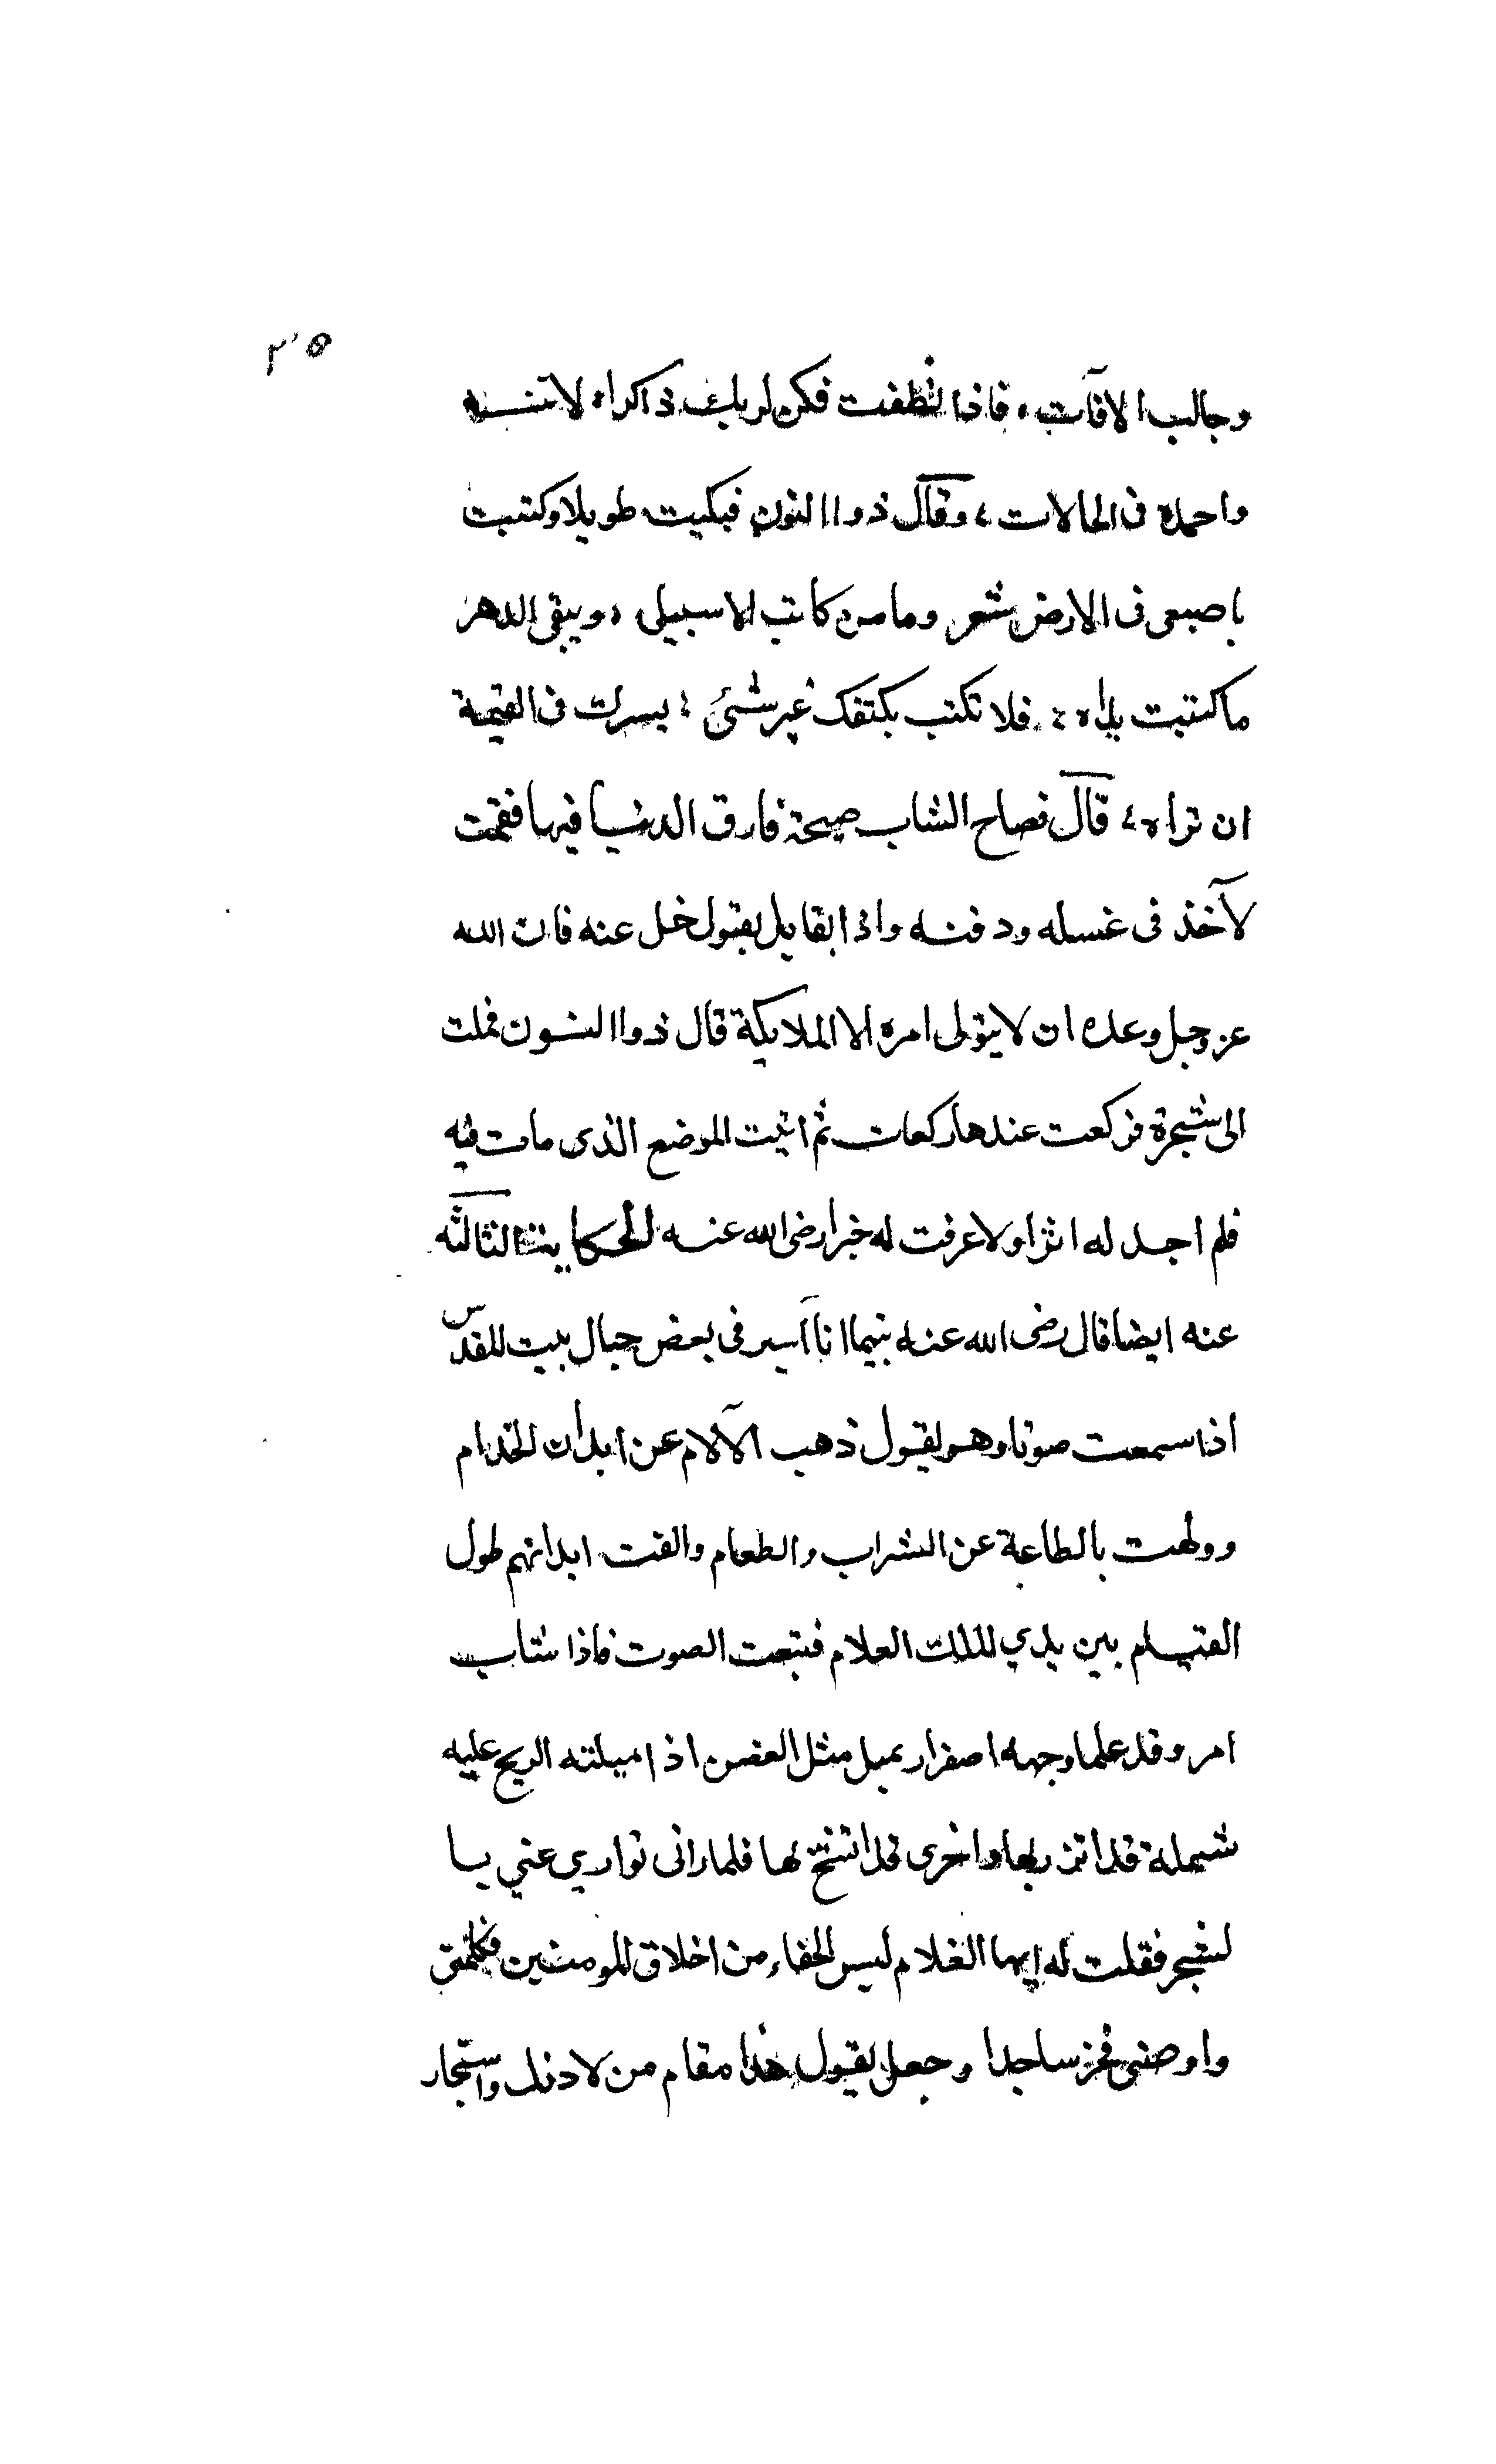 ٢٥
وجالب الافآت، فاذا نطقت فكن لربك ذاكرا، لا تنسه
واحمده فى الحالات، وقال ذواالنون فبكيت طويلا وكتبت
باصبعى فى الارض شعر وما من كاتب الا سيبلى، ويبقى الدهر
ما كتبت يداه، فلا تكتب بكتفك غير شئ، يسرك فى القيمة
ان تراه، قال فصاح الشاب صيحة فارق الدنيا فيها فقمت
لآخذ فى غسله ودفنه واذا بقايل يقول خل عنه فان الله
عز وجل وعده ان لا يتولى امره الا الملايكة قال ذواالنون فملت
الى شجرة فركعت عندها ركعات ثم اتيت الموضع الذى مات فيه
فلم اجد له اثرا ولا عرفت له خبرا رضى الله عنه الحكاية الثالثه
عنه ايضا قال رضى الله عنه بينما انا آسير فى بعض جبال بيت المقدس
اذا سمعت صوتا وهو يقول ذهب الآلام عن ابدان الخدام
وولهت بالطاعة عن الشراب والطعام والفت ابدانهم طول
القيام بين يدي الملك العلام فتبعت الصوت فاذا شاب
امر وقد علا وجهه اصفرار يميل مثل الغصن اذا ميلته الريح عليه
شمله قد اتزر بها واخرى قد اتشح لها فلما رانى توارى عني با
لشجر فقلت له ايها الغلام ليس الجفاء من اخلاق المومنين فكلمنى
واوصنى فخر ساجدا وجعل يقول هذا مقام من لاذ بك واستجار